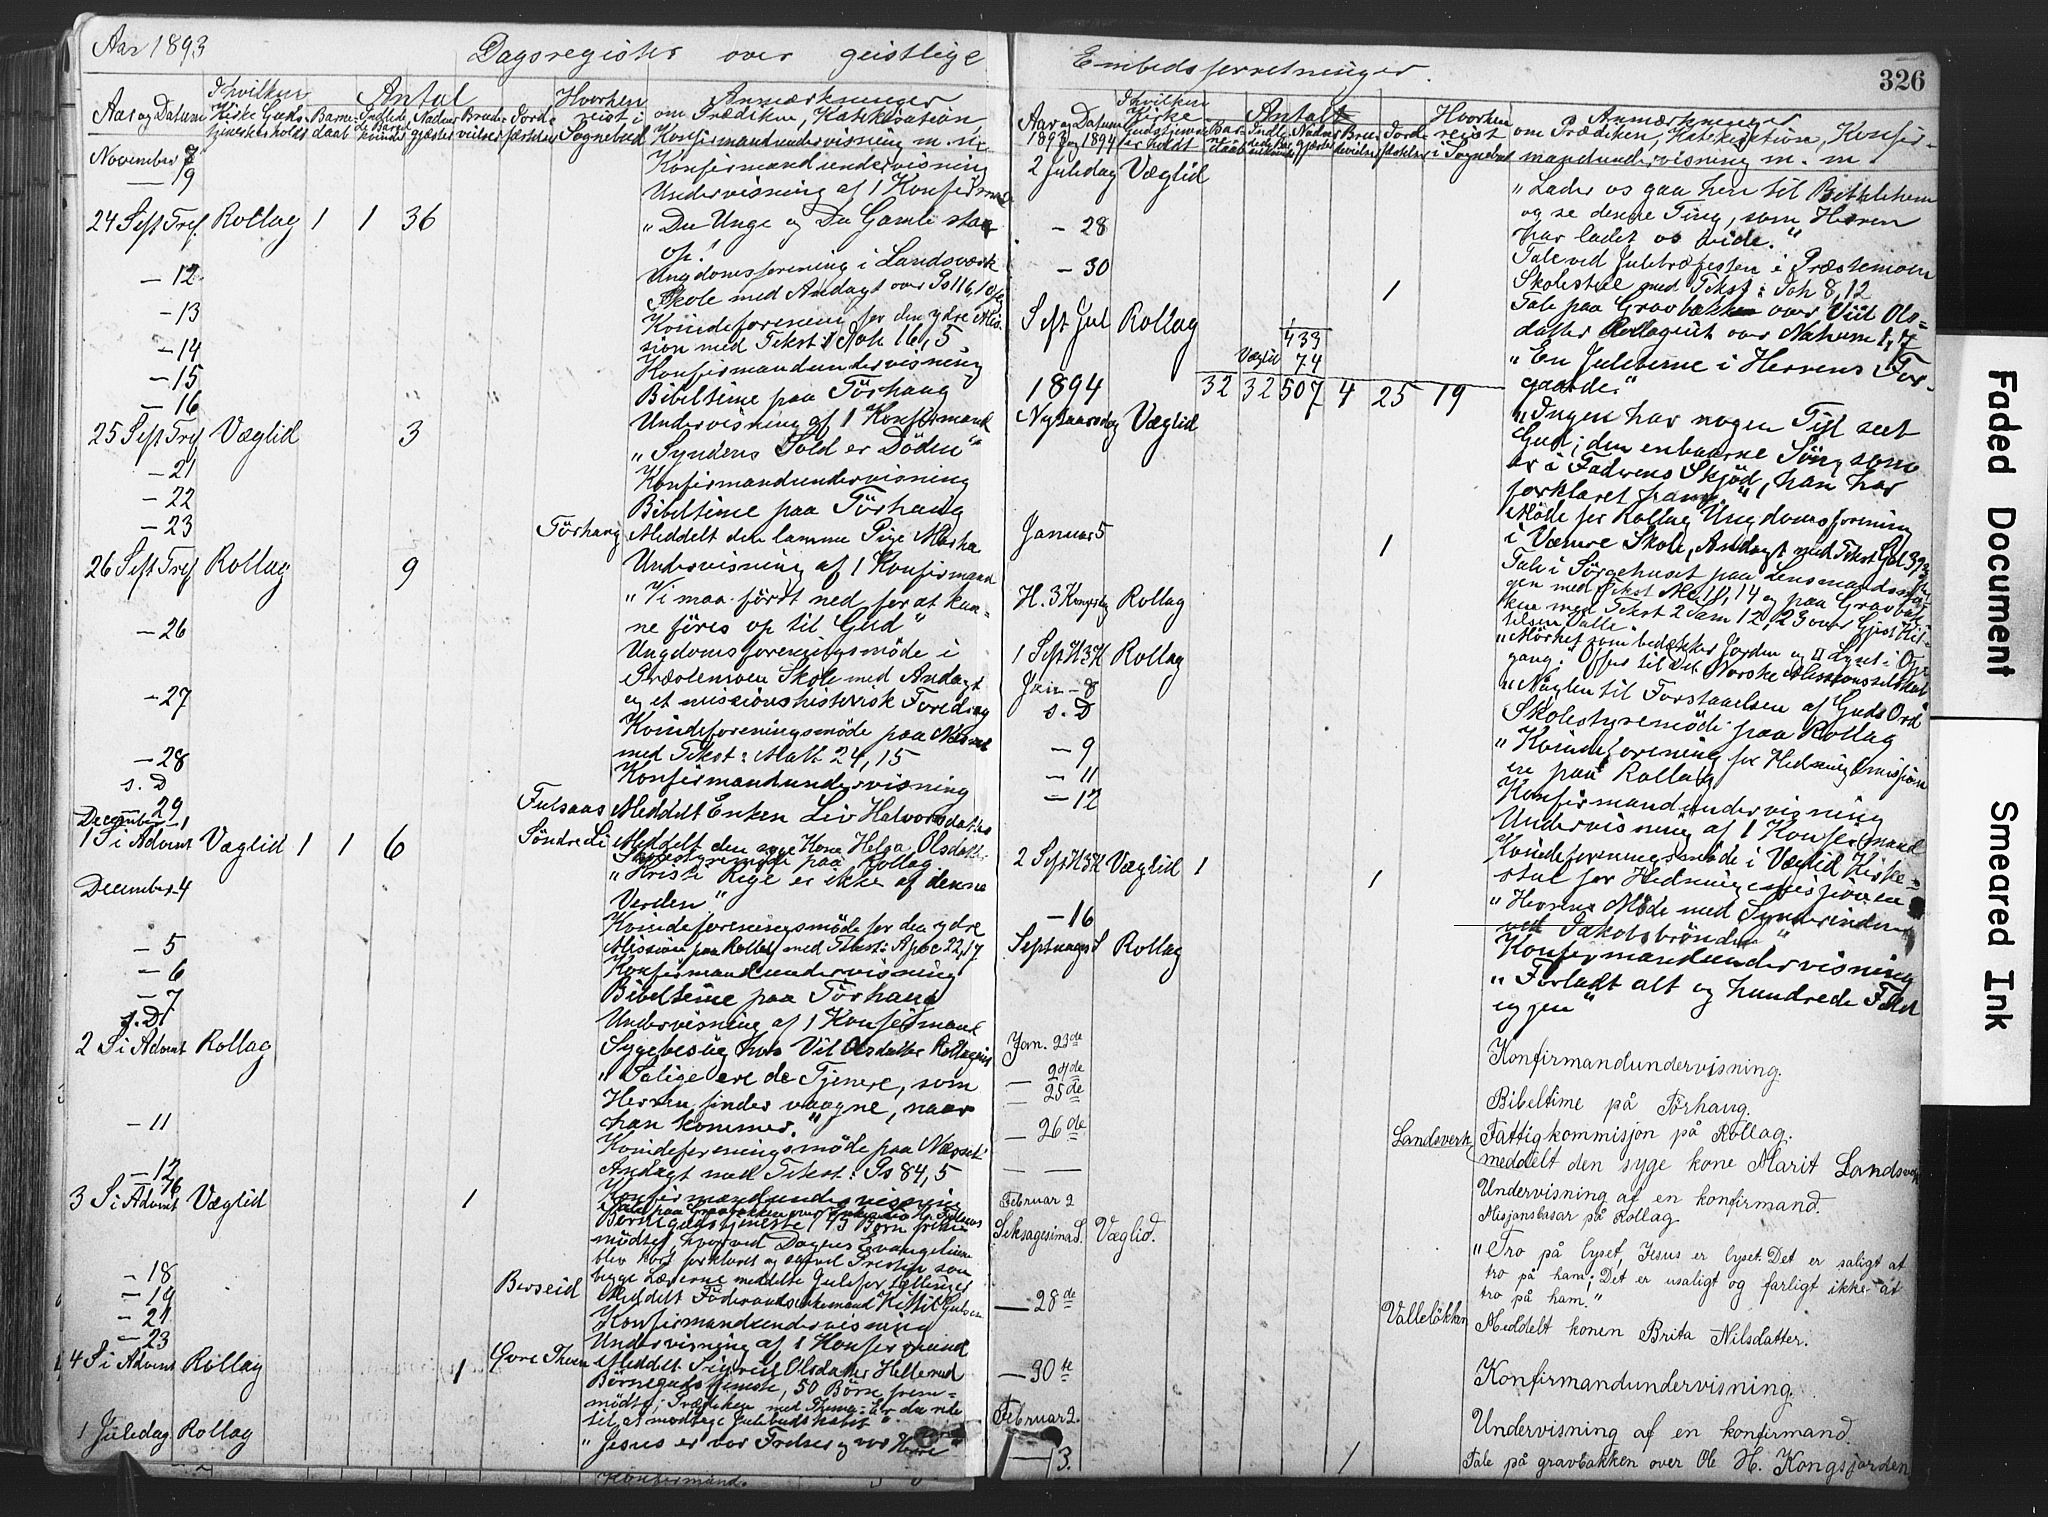 Aar 1893
Dagsregister over geistlige
Aar og Datum
I hvilken Kirke Gudstjeneste holdes
Antal
Barnedaab
Nadvergjæster
Hvorhen reist i Sognebud
Anmærkninger
om Prædiken, Katekisation,
Konfirmandundervisning m. m.
November 7
Konfirmandundervisning
— 9
Undervisning af 1 Konfirmand
24 S eft Tref. Rollag 1 1 36
"Du Unge og Du Gamle staa
op!"
— 12
Ungdomsforening i Landsværk
Skole med Andagt over Ps 116,
— 13
Kvindeforening for den ydre Mis-
sion med Tekst: Joh 16, 5
— 14
Konfirmandundervisning
— 15
Bibeltime paa Törhaug
— 16
Undervisning af 1 Konfirmand
25 S eft Tref Væglid 3
"Syndens Sold er Döden"
— 21
Konfirmandundervisning
— 22
Bibeltime paa Törhaug
— 23
Törhaug Meddelt den lamme Pige Marha
Undervisning af 1 Konfirmand
26 S eft Tref Rollag 9
"Vi maa först ned for at kun-
ne föres op til Gud"
— 26
Ungdomsforeningsmöde i
Præstemoen Skole med Andagt
og et missionshistorisk Foredrag
— 27
Kvindeforeningsmöde paa
med Tekst: Math 24, 15
— 28
Konfirmandundervisning
s. D
Fulsaas Meddelt Enken Liv Halvorsdatter
— 29
Söndre Li Meddelt den syge Kone Helga Olsdatter
December 1
Skolestyremöde paa Rollag
1 S i Advent Væglid 1 1 6
"Kristi Rige er ikke af denne
Verden"
December 4
Kvindeforeningsmöde for den ydre
Mission paa Rollag med Tekst: Apoc 22, 17
— 5
Konfirmandundervisning
— 6
Bibeltime paa Törhaug
— 7
Undervisning af 1 Konfirmand
s. D
Sygebesög hos Vil Olsdatter
2 S i Advent Rollag
"Salige ere de Tjenere, som
Herren finder vaagne, naar
han kommer."
— 11
Kvindeforeningsmöde paa
Andagt med Tekst: Ps 84, 5
— 12
Konfirmandundervisning
— 16
3 S i Advent Væglid 1
Börnegudstjeneste 145 Börn
mödte, hvorved Dagens Evangelium
blev kort forklaret og
begge Lærerne meddelte Julefortællinger
— 18
Berseid Meddelt
— 19
Konfirmandundervisning
— 21
Undervisning af 1 Konfirmand
— 23
Meddelt Sigrid Olsdatter Hellerud
4 S i Advent Rollag 1
Börnegudstjeneste, 50 Börn frem-
mödte; Prædiken med Thema: Er du rede
til at modtage Julebudskabet"
1 Juledag Rollag
"Jesus er vor Frelser og vor Herre"
Konfirmand.
Embedsforretninger.
326
Aar og Datum
1893 og 1894
I hvilken Kirke Gudstjeneste er holdt
Antalt
Hvorhen reist i Sognebud
Anmærkninger
om Prædiken, Katekisation, Konfir-
mandundervisning m. m.
2 Juledag Væglid
"Lader os gaa hen til Bethlehem
og se denne Ting, som Herren
har ladet os vide."
— 28
Tale ved Juletræfesten i Præstemoen
Skolestue med Tekst: Joh 8, 12
— 30 1
Tale paa Gravbakken over Vil Ols-
datter over Nahum 1, 7
S eft Jul Rollag
"En Juletime i Herrens For-
gaarde."
433
Væglid 74
1894 32 32 507 4 25 19
Nytaarsdag Væglid
"Ingen har nogen Tid seet
Gud; den enbaarne Sön, som
er i Faderens Skjöd, han har
forklaret ham"
Januar 5 1
Möde for Rollag Ungdomsforening
i Værire Skole, Andagt med Tekst
Tale i Sörgehuset paa Lensmands
gen med Tekst og paa Gravbak-
ken med Tekst 2 Sam 12, 23 over
telsen Valle.
H. 3 Kongedag Rollag
"Mörket som bedækker Jorden og Lyset i Op-
gang." Offer til Det Norske Missionsselskab
1 S eft H3K Rollag
"Nöglen til Forstaaelsen af Guds Ord
Jan — 8
Skolestyremöde paa Rollag
s. D
"Kvindeforening for Hedningemissjon
en paa Rollag
— 9
Konfirmandundervisning
— 11
Undervisning af 1 Konfirmand
— 12
Kvindeforeningsmöde i Væglid Kirke-
stue for Hedningemissjonen
2 S eft H3K Væglid 1 1
"Herrens Möde med Synderinden
ved Jakobsbrönden"
— 16
Konfirmandundervisning
Septuages S Rollag
"Forladt alt og hundrede Fold
igjen"
Jan. 23de
Konfirmandundervisning.
— 24de
Bibeltime på Törhaug.
— 25de
Fattigkommisjon på Rollag.
— 26de
Landsverk meddelt den syge kone Marit Landsverk
— —
Undervisning af en konfirmand.
Februar 2
Misjonsbasar på Rollag
Seksagesima S. Væglid.
"Tro på lyset, Jesus er lyset. Det er saligt at
tro på ham; Det er usaligt og farligt ikke at
tro på ham."
— 28de
Vallelökken Meddelt konen Brita Nilsdatter.
— 30te
Konfirmandundervisning.
Februar 2.
Undervisning af en konfirmand.
— 3. 1
Tale på gravbakken over Ole H. Kongsjorden
Faded Document
Smeared Ink